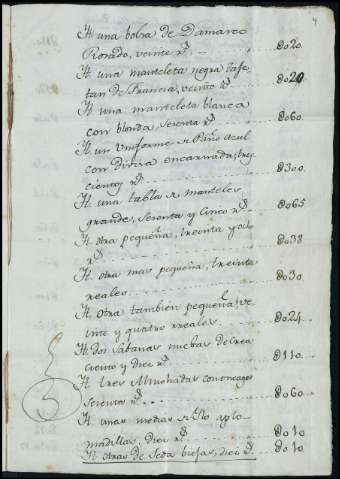 4
It una bolsa de Damasco
Rosado, veinte rs ... 8020
It una manteleta negra tafe
tan de Francia, veinte rs ... 8020
It una manteleta blanca
con blonda, sesenta rs ... 8060
It un Uniforme de Paño Azul
con Divisa encarnada, tres
cientos rs ... 8300
It una tabla de manteles
grandes, sesenta y cinco rs ... 8065
It otra pequeña, treinta y ocho
rs ... 8038
It otra mas pequeña, treinta
reales ... 8030
It otra tambien pequeña, ve
inte y quatro reales ... 8024
It dos sabanas nuebas de crea
ciento y diez rs ... 8110
It tres Almohadas con encages
sesenta rs ... 8060
It unas medias de
diez rs ... 8010
It otras de seda biejas, diez rs ... 8010